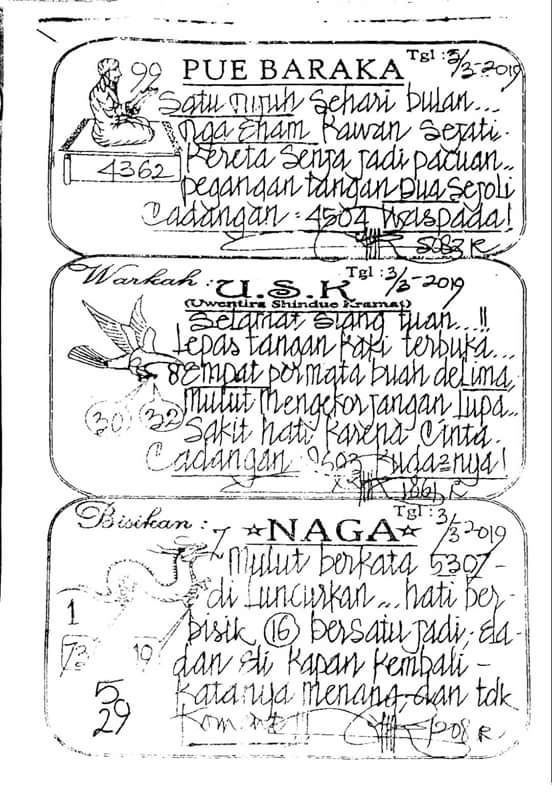 99
PUE BARAKA
Tgl : 3/3-2019
Satu tujuh Sehari bulan...
nga Enam Kawan Sejati.
Kereta Senja jadi pacuan..
4362
pegangan tangan Dua Sejoli
Cadangan : 4504 Waspada!
5083 R
Warkah :
U.S.K
Tgl : 3/3-2019
(Uwentira Shindue Kramat)
Selamat siang tuan...!!
Lepas tangan kaki terbuka...
8 Empat permata buah deLima,
30 32
Mulut Mengekor jangan Lupa...
Sakit hati karena Cinta.
Cadangan : 9503 Kuda2nya!
1861 R
Bisikan :
☆NAGA☆
Tgl : 3/3-2019
7
Mulut berkata 5307-
di Luncurkan... hati ber-
1
bisik 16 bersatu jadi. Ela
73 19
dan Eli Kapan Kembali -
5
Katanya Menang, dan tdk
29
1208 R